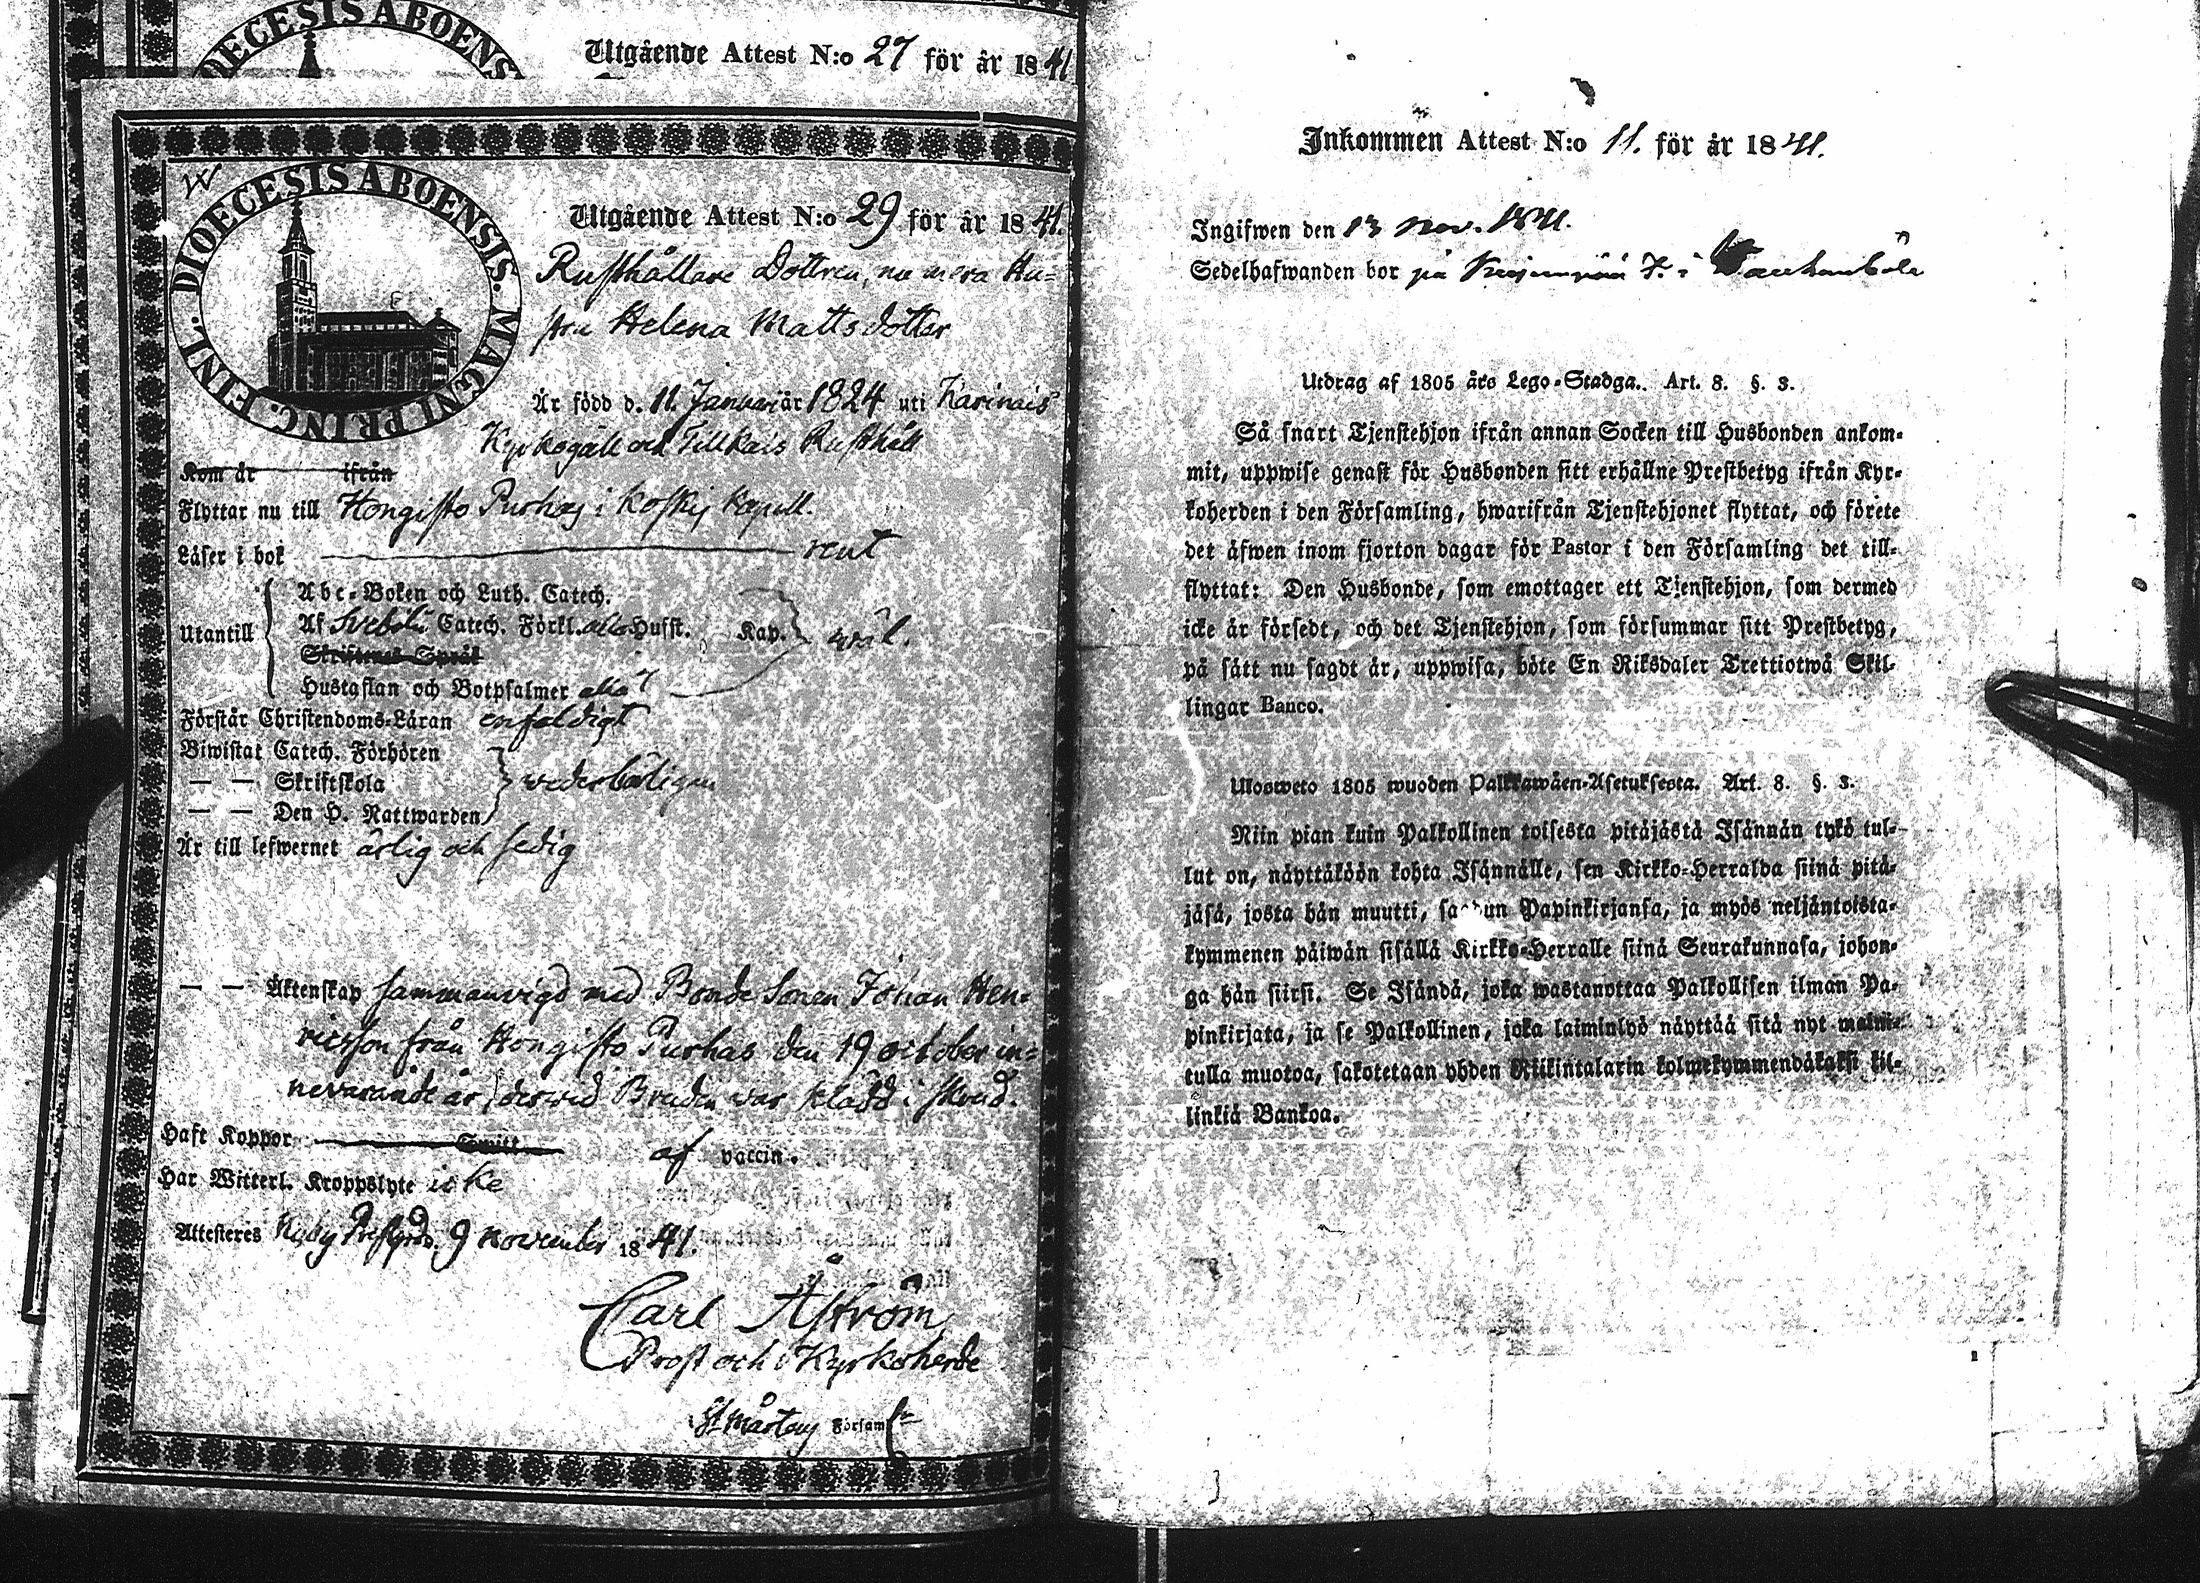 DIOECESIS ABOENSIS
Utgående Attest N:o 27 för år 1841
DIOECESIS ABOENSIS. MAGNI PRINC. FINL.
Utgående Attest N:o 29 för år 1841.
Rusthållare Dottren, nu mera Hu-
stru Helena Mattsdotter
Är född d. 11. Januariär 1824 uti Karinais
Kyrkogäll och Tillkais Rusthåll
Kom år ifrån
Flyttar nu till Hongisto Purhas i Koskis Kapell.
Läser i bok rent
Abc-Boken och Luth. Catech.
Utantill Af Svebelii Catech. Förkl. alla Hufst. Kap. wäl.
Skriftenes Språk
Hustaflan och Botpsalmer alla
Förstår Christendoms-Läran enfaldigt
Biwistat Catech. Förhören
— — Skriftskola wederbörligen
— — Den H. Nattwarden
Är till lefwernet ärlig och sedig
— — Äktenskap sammanvigd med Bonde Sonen Johan Hen-
ricsson från Hongisto Purhas den 19 october in-
nevarande år, derwid Bruden war klädd i skrud.
Haft Koppor Smitt af vaccin.
Har Witterl. Kroppslyte icke
Attesteres Kyby Prestgård, 9 November 1841.
Carl Åström
Prost och Kyrkoherde
St Mårtens Församl
Inkommen Attest N:o 11. för år 1841.
Ingifwen den 13 Nov. 1841.
Sedelhafwanden bor på i
Utdrag af 1805 års Lego-Stadga. Art. 8. §. 3.
Så snart Tjenstehjon ifrån annan Socken till Husbonden ankom-
mit, uppwise genast för Husbonden sitt erhållne Prestbetyg ifrån Kyr-
koherden i den Församling, hwarifrån Tjenstehjonet flyttat, och förete
det äfwen inom fjorton dagar för Pastor i den Församling det till-
flyttat: Den Husbonde, som emottager ett Tjenstehjon, som dermed
icke är försedt, och det Tjenstehjon, som försummar sitt Prestbetyg,
på sätt nu sagdt är, uppwisa, böte En Riksdaler Trettiotwå Skil-
lingar Banco.
Ulosweto 1805 wuoden Palkkawäen-Asetuksesta. Art. 8. §. 3.
Niin pian kuin Palkollinen toisesta pitäjästä Isännän tykö tul-
lut on, näyttäköön kohta Isännälle, sen Kirkko-Herralda siinä pitä-
jäsä, josta hän muutti, saadun Papinkirjansa, ja myös neljäntoista-
kymmenen päiwän sisällä Kirkko-Herralle siinä Seurakunnasa, johon-
ga hän siirsi. Se Isändä, joka wastanottaa Palkollisen ilman Pa-
pinkirjata, ja se Palkollinen, joka laiminlyö näyttää sitä nyt maini-
tulla muotoa, sakotetaan yhden Riikintalarin kolmekymmendäkaksi kil-
linkiä Bankoa.